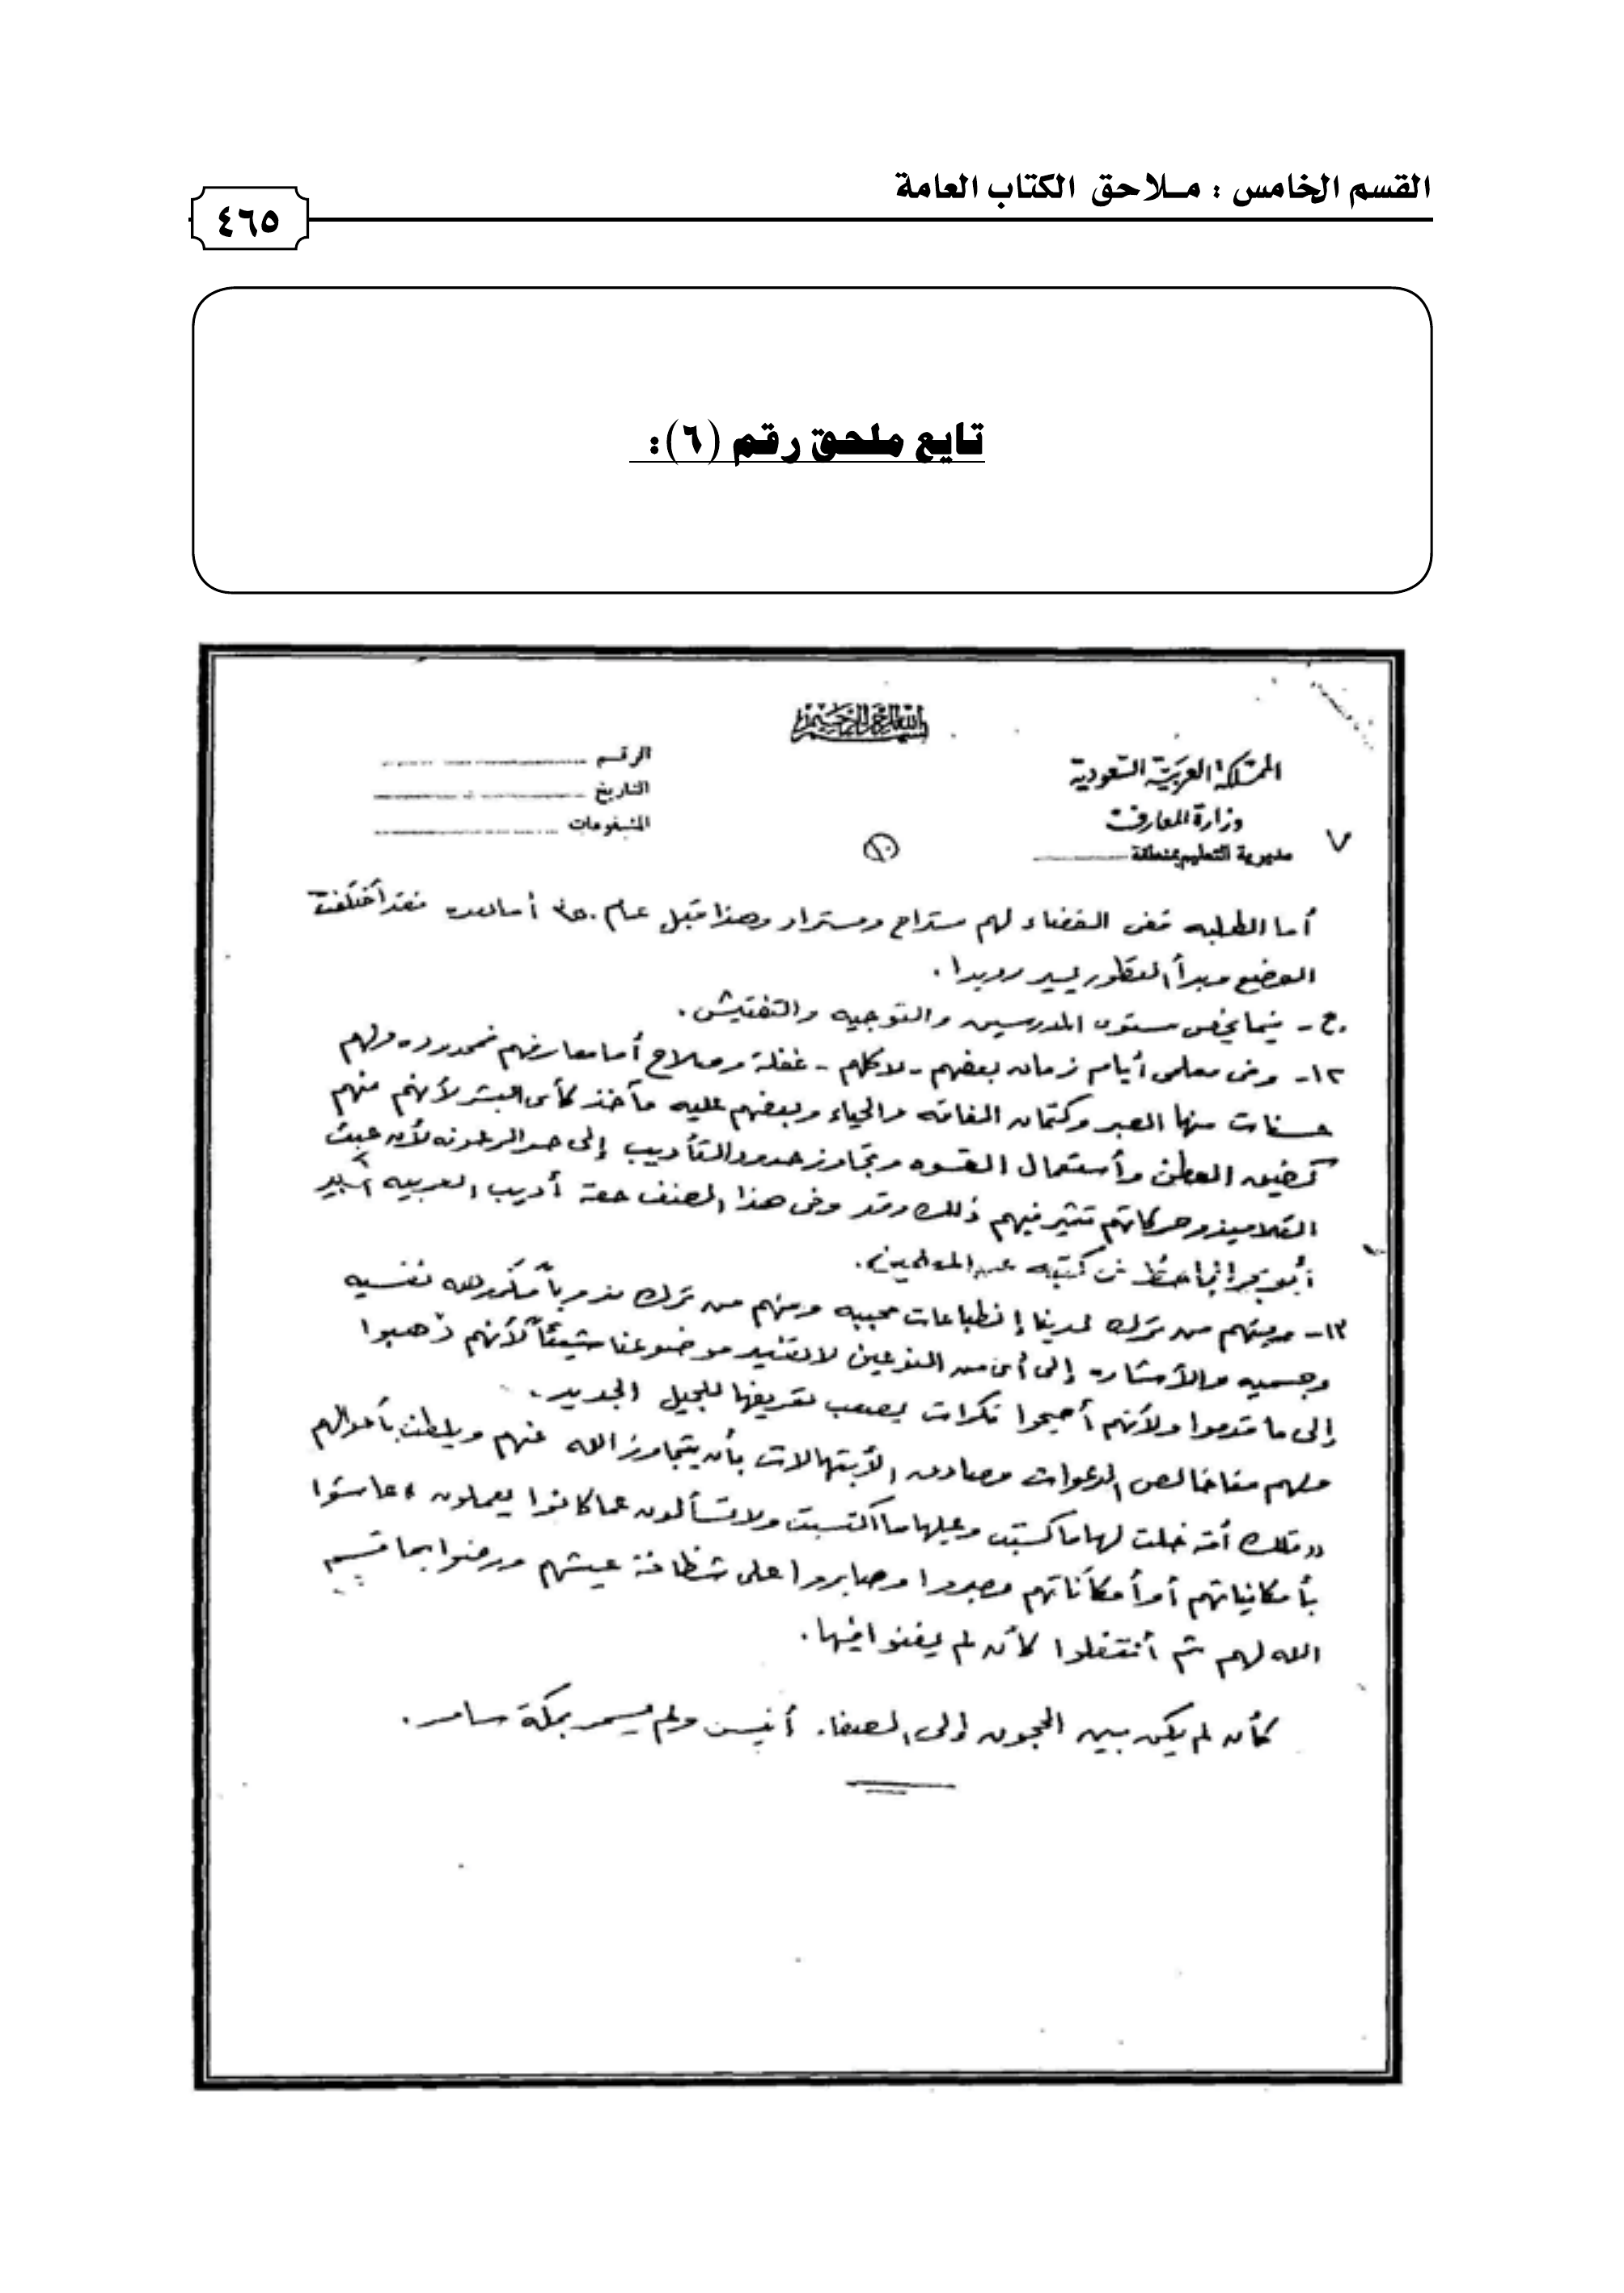 القسم الخامس : مـلاحق الكتاب العامة
٤٦٥
تابع ملحق رقم (٦):
بسم الله الرحمن الرحيم
المملكة العربية السعودية
وزارة المعارف
مديرية التعليم بمنطقة
الرقم
التاريخ
المشفوعات
٧
١٠
أما الطلبه ففى الفضاء لهم مستراح ومستراد وهذا قبل عام ٣٥٠ أما بعده فقد أختلفت
الوضع وبدأ التطور يسير رويدا.
ع - فيما يخص مستوى المدرسين والتوجيه والتفتيش.
١٢- وفى معلمى أيام زمان بعضهم - لا كلهم - غفلة وصلاح أما معارفهم فمحدوده ولهم
حسنات منها الصبر وكتمان الفاقه والحياء وبعضهم عليه مآخذ كأى البشر لأنهم منهم
كضيق العطن وأستعمال القسوه وتجاوز حدود التأديب إلى حد الرعونه لأن عبث
التلاميذ وحركاتهم تثير فيهم ذلك وقد وفى هذا الصنف حقة أديب العربيه الكبير
أبو بحر الجاحظ فى كتبه عن المعلمين.
١٣- وميتهم من ترك لدينا إنطباعات محببه ومنهم من ترك ندوباً مكروهه نفسيه
وجسميه والأشاره إلى أى من النوعين لا تفيد موضوعنا شيئاً لأنهم ذهبوا
إلى ما قدموا ولأنهم أصبحوا نكرات يصعب تعريفها للجيل الجديد.
ولهم منا خالص الدعوات وصادق الأبتهالات بأن يتجاوز الله عنهم ويلطف بأحوالهم
«تلك أمة خلت لها ما كسبت وعليها ما اكتسبت ولا تسألون عما كانوا يعملون» عاشوا
بأمكانياتهم أو أمكاناتهم وصبروا وصابروا على شظافة عيشهم ورضوا بما قسم
الله لهم ثم أنتقلوا كأن لم يغنوا فيها.
كأن لم يكن بين الحجون إلى الصفا. أنيس ولم يسمر بمكة سامر.